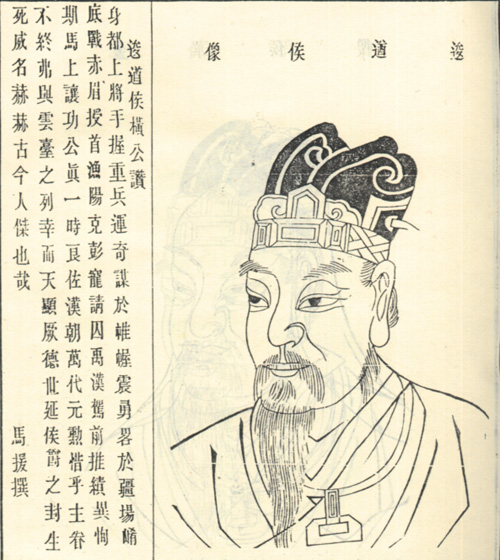 逡遒侯像
逡遒侯橫公讚
身都上將手握重兵運奇謀於帷幄震勇畧於疆場崤
底戰赤眉授首漁陽克彭寵請囚禹漢駕前推績異恂
期馬上讓功公眞一時良佐漢朝萬代元勳惜乎主眷
不終弗與雲臺之列幸而天顯厥德世延侯爵之封生
死威名赫赫古今人傑也哉 馬援撰